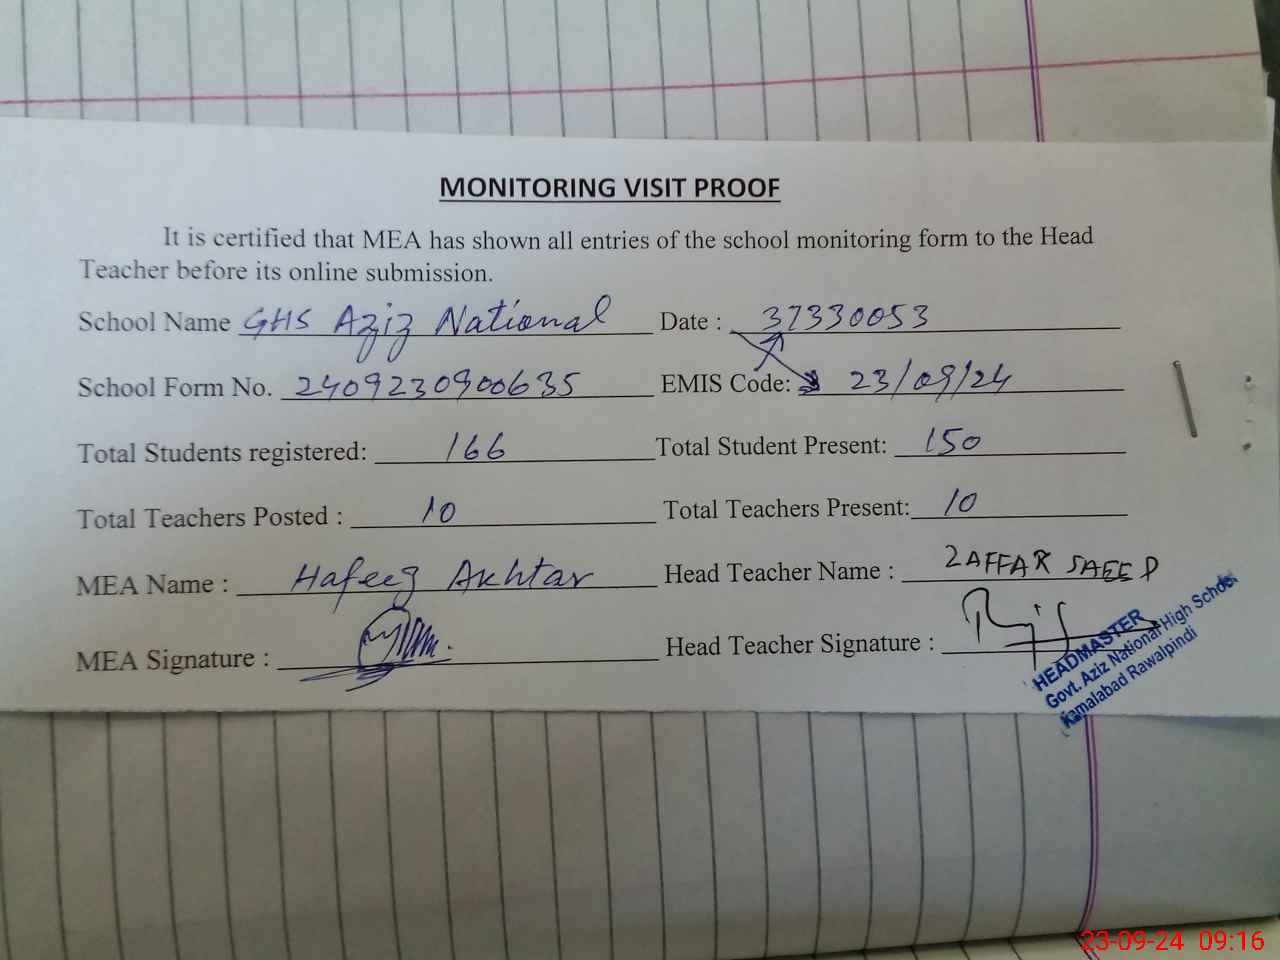 MONITORING VISIT PROOF
It is certified that MEA has shown all entries of the school monitoring form to the Head
Teacher before its online submission.
School Name GHS Aziz National Date : 37330053
School Form No. 2409230900635 EMIS Code: 23/09/24
Total Students registered: 166 Total Student Present: 150
Total Teachers Posted : 10 Total Teachers Present: 10
MEA Name : Hafeez Akhtar Head Teacher Name : ZAFFAR SAEED
MEA Signature : Head Teacher Signature :
HEADMASTER
Govt. Aziz National High School
Kamalabad Rawalpindi
23-09-24 09:16